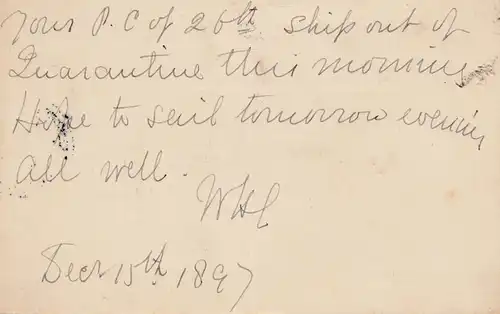 Your P.C of 26th. Ship out of
Quarantine this morning
Hope to sail tomorrow evening
All well.
WHC
Decr 15th 1897